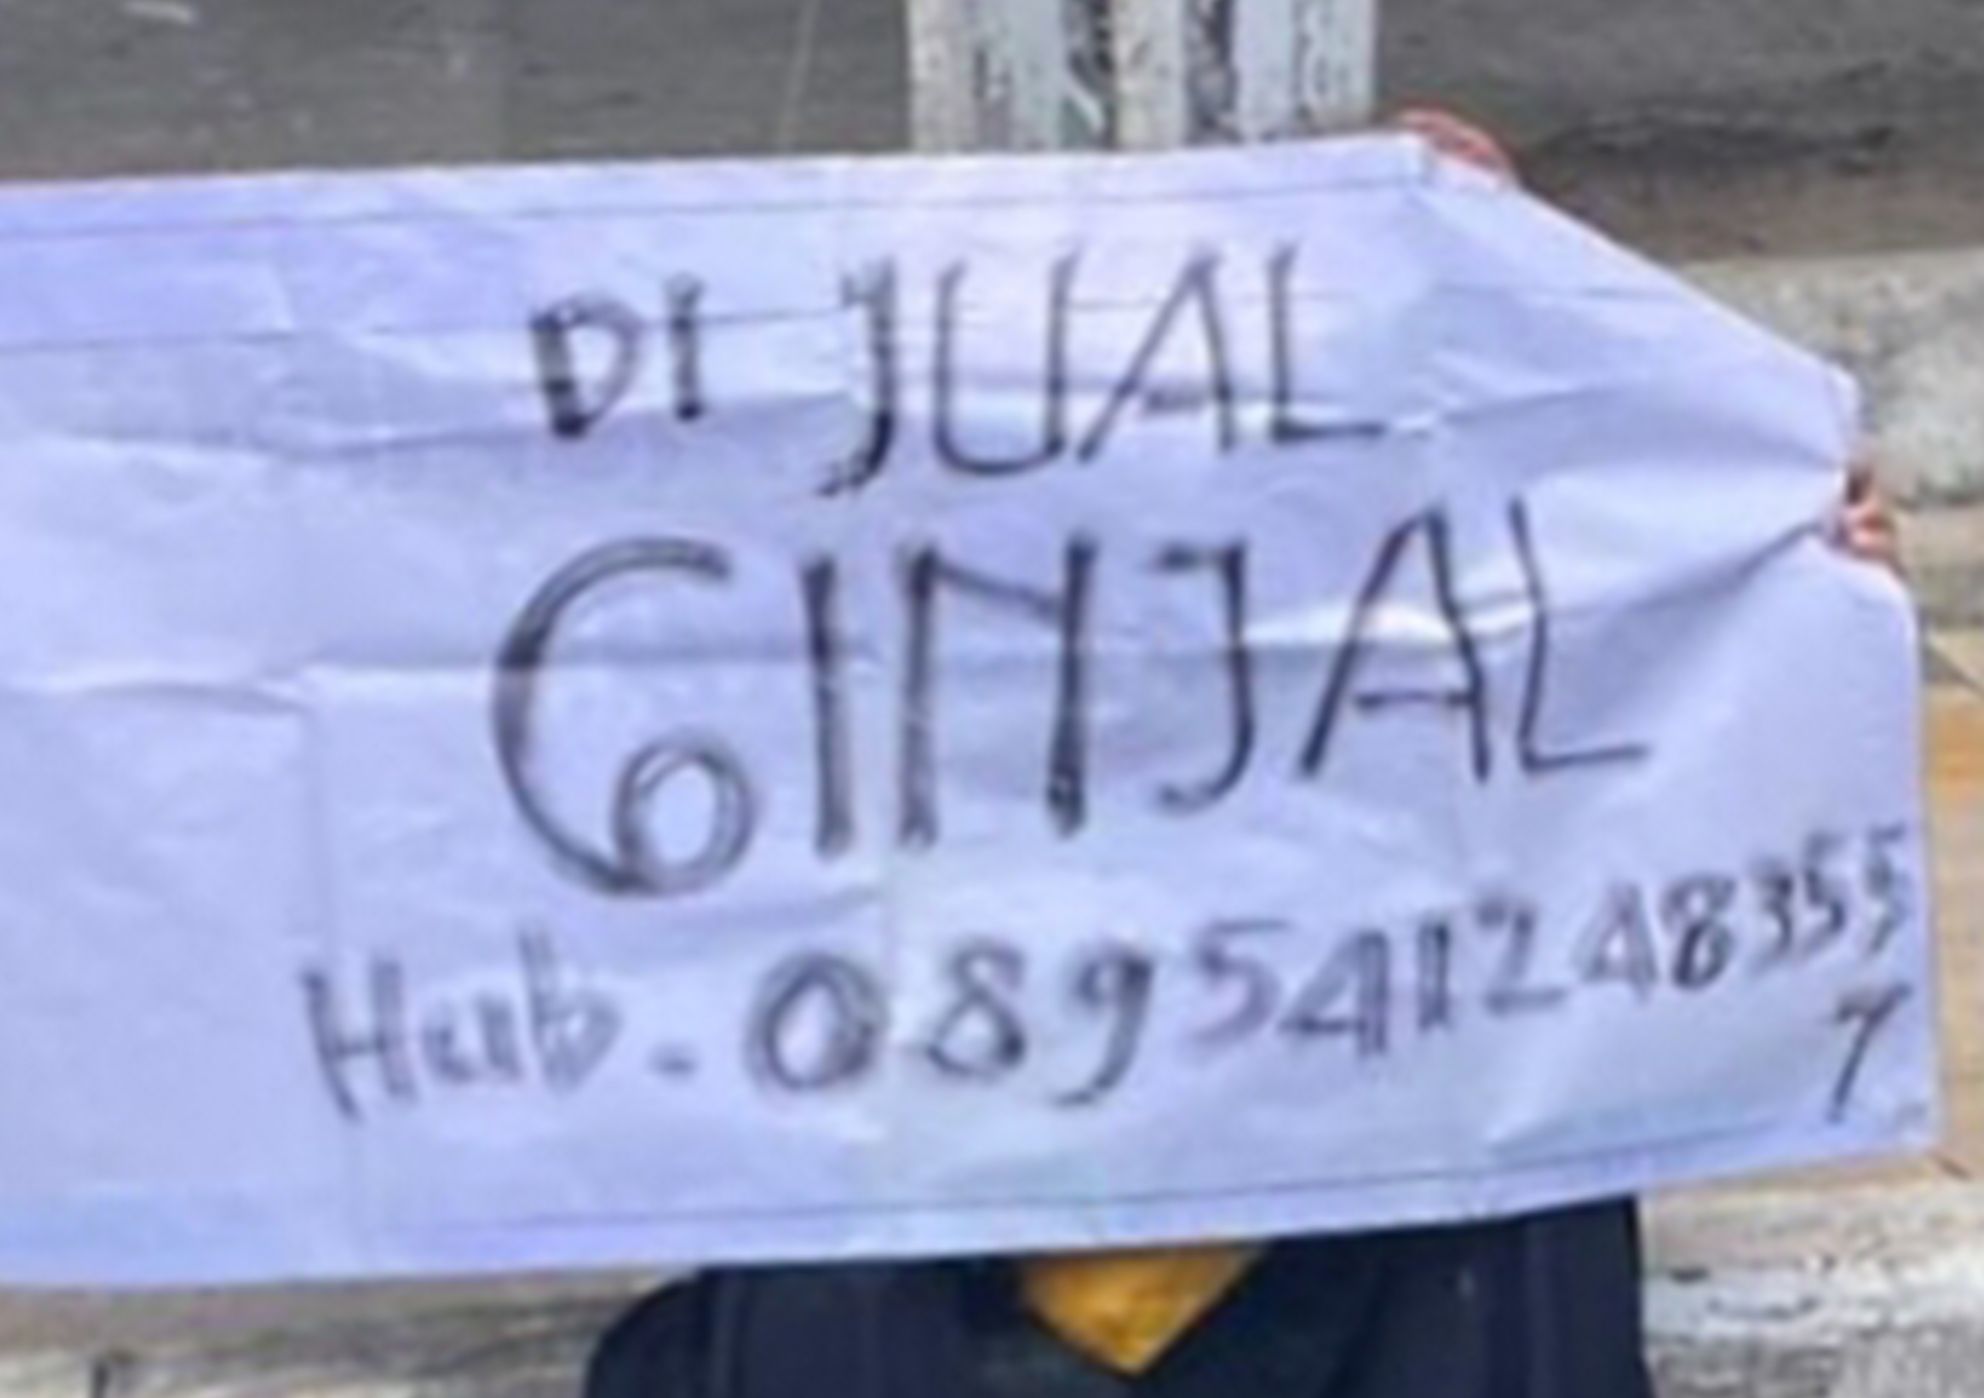 DI JUAL
GINJAL
Hub - 089541248355
7